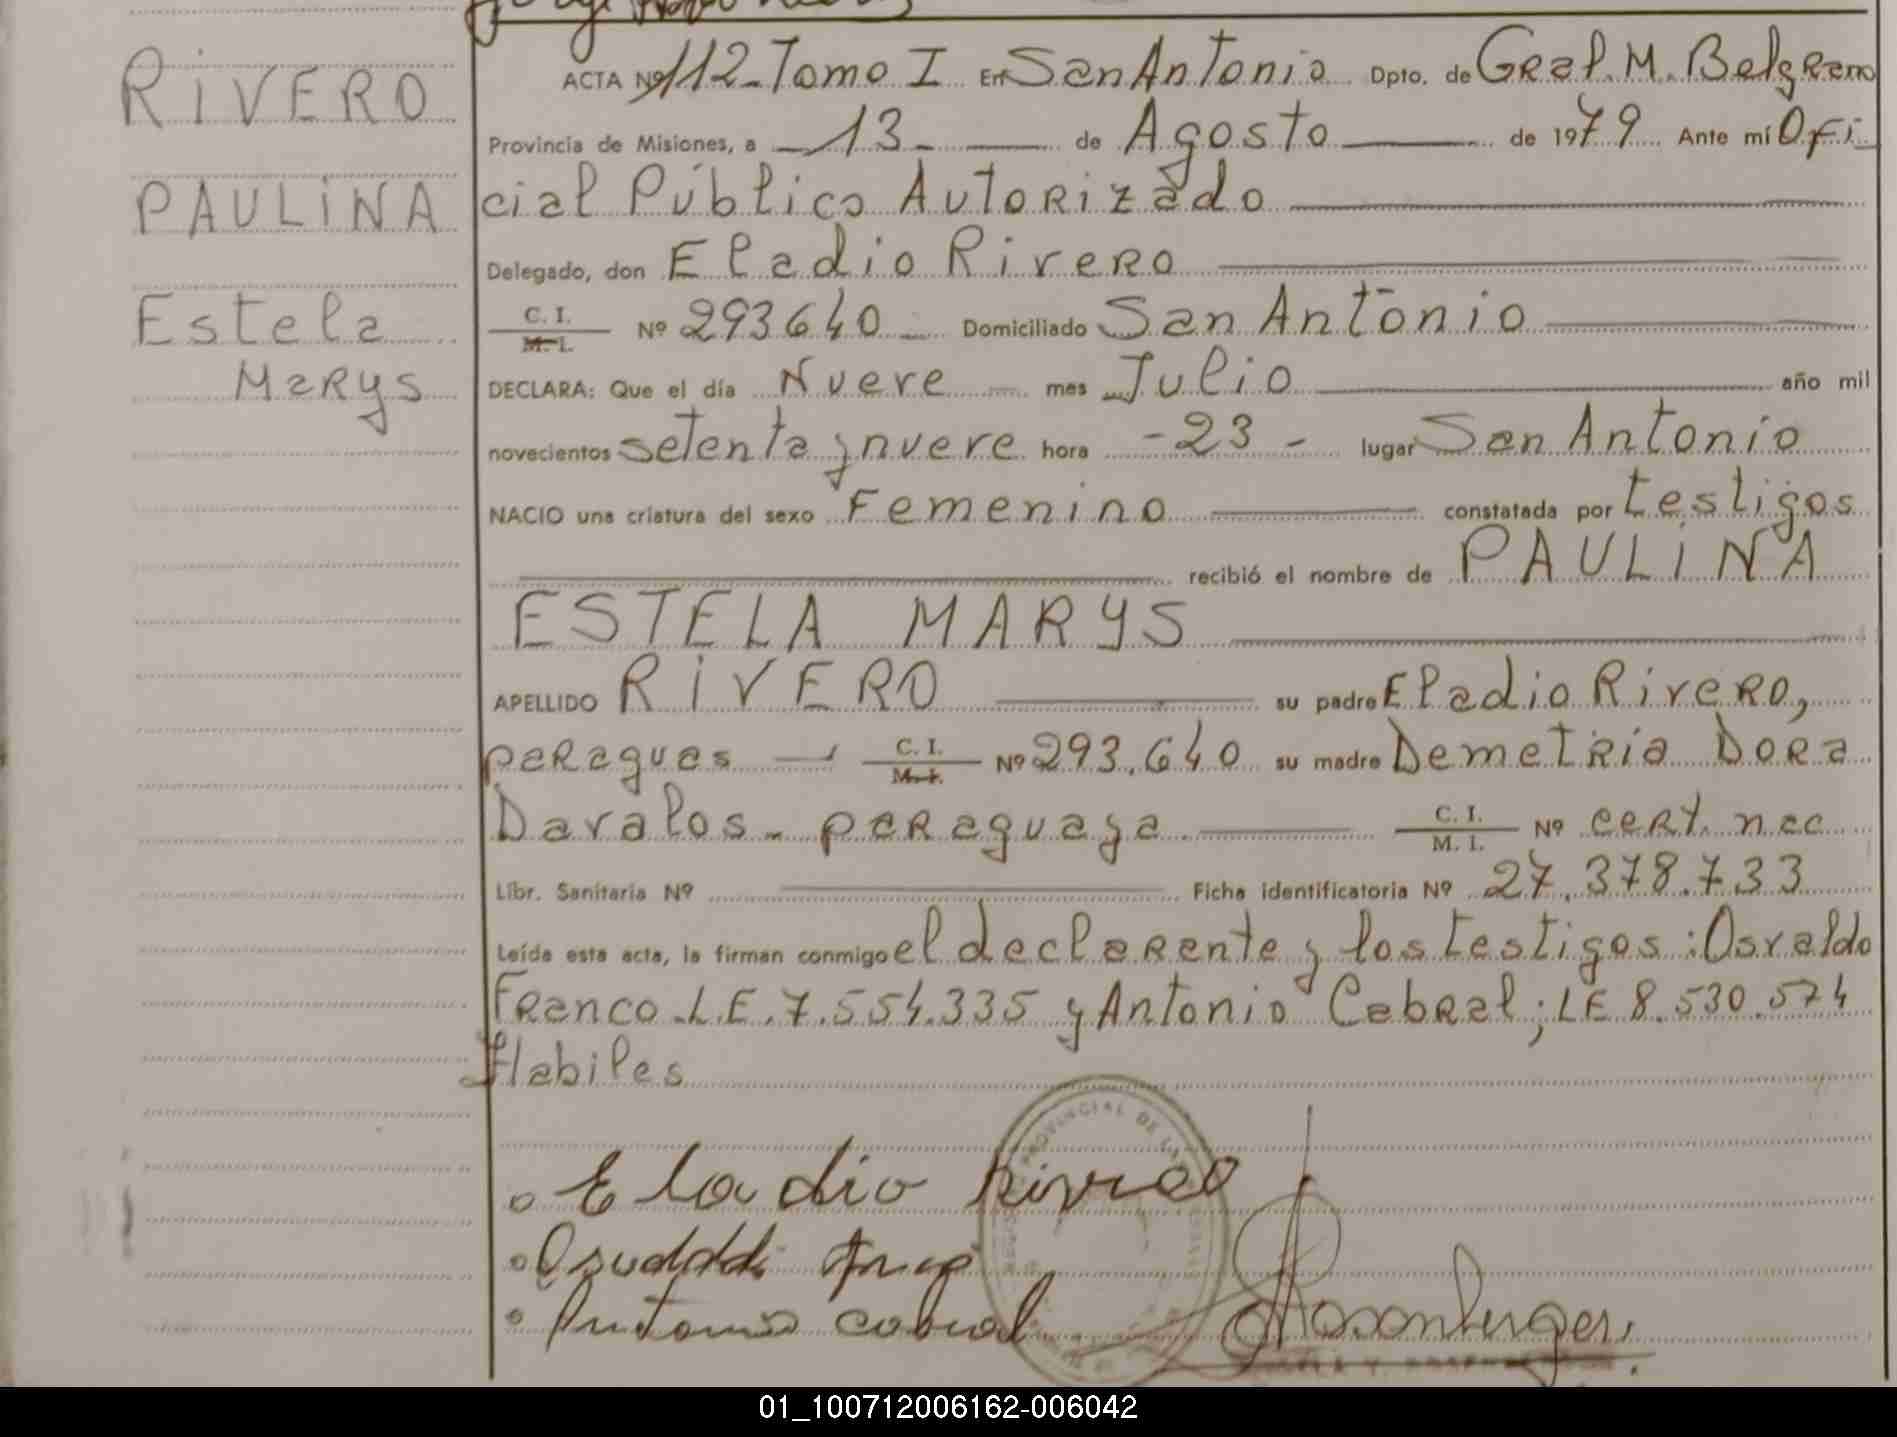 RIVERO
PAULINA
Estela
Marys
ACTA Nº 112 - Tomo I En San Antonio Dpto. de Gral. M. Belgrano
Provincia de Misiones, a - 13 - de Agosto de 1979 Ante mí Ofi
cial Público Autorizado
Delegado, don Eladio Rivero
C. I.
M. I. Nº 293640 Domiciliado San Antonio
DECLARA: Que el día Nueve mes Julio año mil
novecientos setenta y nueve hora - 23 - lugar San Antonio
NACIO una criatura del sexo Femenino constatada por testigos
recibió el nombre de PAULINA
ESTELA MARYS
APELLIDO RIVERO su padre Eladio Rivero,
paraguas C. I.
M. I. Nº 293.640 su madre Demetria Dora
Davalos - paraguaya C. I.
M. I. Nº cert. nac
Libr. Sanitaria Nº Ficha identificatoria Nº 27.378.733
Leída esta acta, la firman conmigo el declarante y los testigos: Osvaldo
Franco L.E. 7.554.335 y Antonio Cabral; LE 8.530.574
Habiles
PROVINCIAL DE
Eladio Rivero
Antonio Cabral
01_100712006162-006042